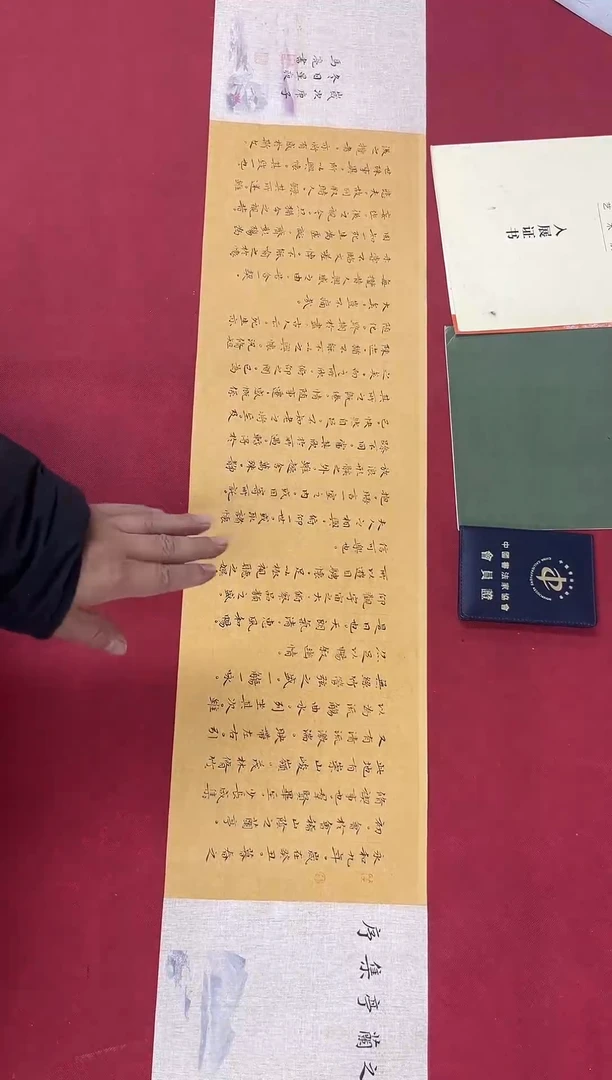 蘭亭集序
永和九年。歲在癸丑。暮春之
初。會於會稽山陰之蘭亭。
修禊事也。羣賢畢至。少長咸集
此地有崇山峻嶺。茂林修竹
又有清流激湍。映帶左右。引
以為流觴曲水。列坐其次。雖
無絲竹管弦之盛。一觴一咏
亦足以暢敘幽情
是日也。天朗氣清。惠風和暢
仰觀宇宙之大。俯察品類之盛。
所以遊目騁懷。足以極視聽之娛
信可樂也。
夫人之相與。俯仰一世。或取諸懷
抱。晤言一室之內。或因寄所託
放浪形骸之外。雖趣舍萬殊。靜
躁不同。當其欣於所遇。暫得於
己。快然自足。不知老之將至。及
其所之既倦。情隨事遷。感慨係
之矣。向之所欣。俯仰之間。已為
陳迹。猶不能不以之興懷。況修短
隨化。終期於盡。古人云。死生亦
大矣。豈不痛哉。
每攬昔人興感之由。若合一契
未嘗不臨文嗟悼。不能喻之於懷
固知一死生為虛誕。齊彭殤為
妄作。後之視今。亦猶今之視昔
悲夫。故列敘時人。錄其所述。雖
世殊事異。所以興懷。其致一也
後之攬者。亦將有感於斯文
歲次庚子
冬日
入展证书
艺术
中國書法家協會
會員證